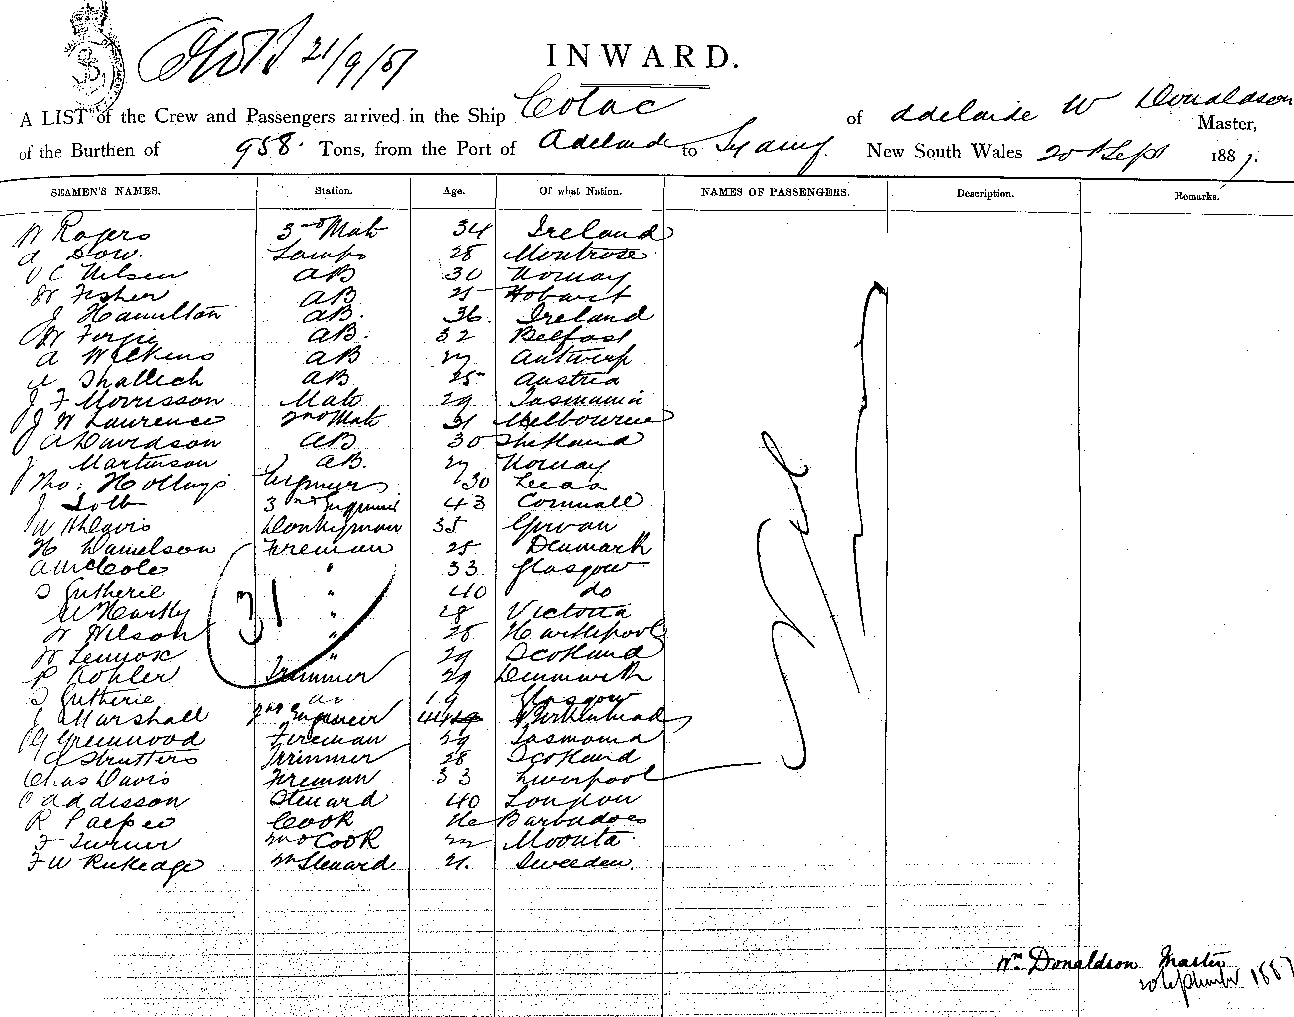 21/9/87
INWARD.
A LIST of the Crew and Passengers arrived in the Ship Colac of Adelaide W Donaldson Master,
of the Burthen of 958 Tons, from the Port of Adelaide to Sydney New South Wales 20th Sept 1887.
SEAMEN'S NAMES. Station. Age. Of what Nation. NAMES OF PASSENGERS. Description. Remarks.
W Rogers 3rd Mate 34 Ireland
A Dow Lamps 28 Montrose
C Nilsen AB 30 Norway
W Fisher AB 25 Hobart
J Hamilton AB. 36 Ireland
W AB. 32 Belfast
A Wilkins AB 27 Antwerp
AB 25 Austria
J F Morrisson Mate 29 Tasmania
J W Laurence 2nd Mate 31 Melbourne
J A Davidson AB 30 Shetland
J Martinson AB. 27 Norway
Tho: 30 Leeds
J 3rd Engineer 43 Cornwall
W H Davis Donkeyman 35 Girvan
H Danielson Fireman 25 Denmark
A McCole " 33 Glasgow
S Gutherie " 40 do
" 28 Victoria
W Wilson " 28 Hartlepool
W Lennox " 29 Scotland
P Kohler Trimmer 29 Denmark
S Gutherie do 19 Glasgow
J Marshall 2nd Engineer 44 Birkenhead
G Greenwood Fireman 29 Tasmania
Strutters Trimmer 28 Scotland
Chas Davis Fireman 33 Liverpool
C Addisson Steward 40 London
R Cook Barbadoes
F Turner 2nd Cook 22 Moonta
F W 2nd Steward 21. Sweeden
31
Nil
Wm Donaldson Master
20 September 1887